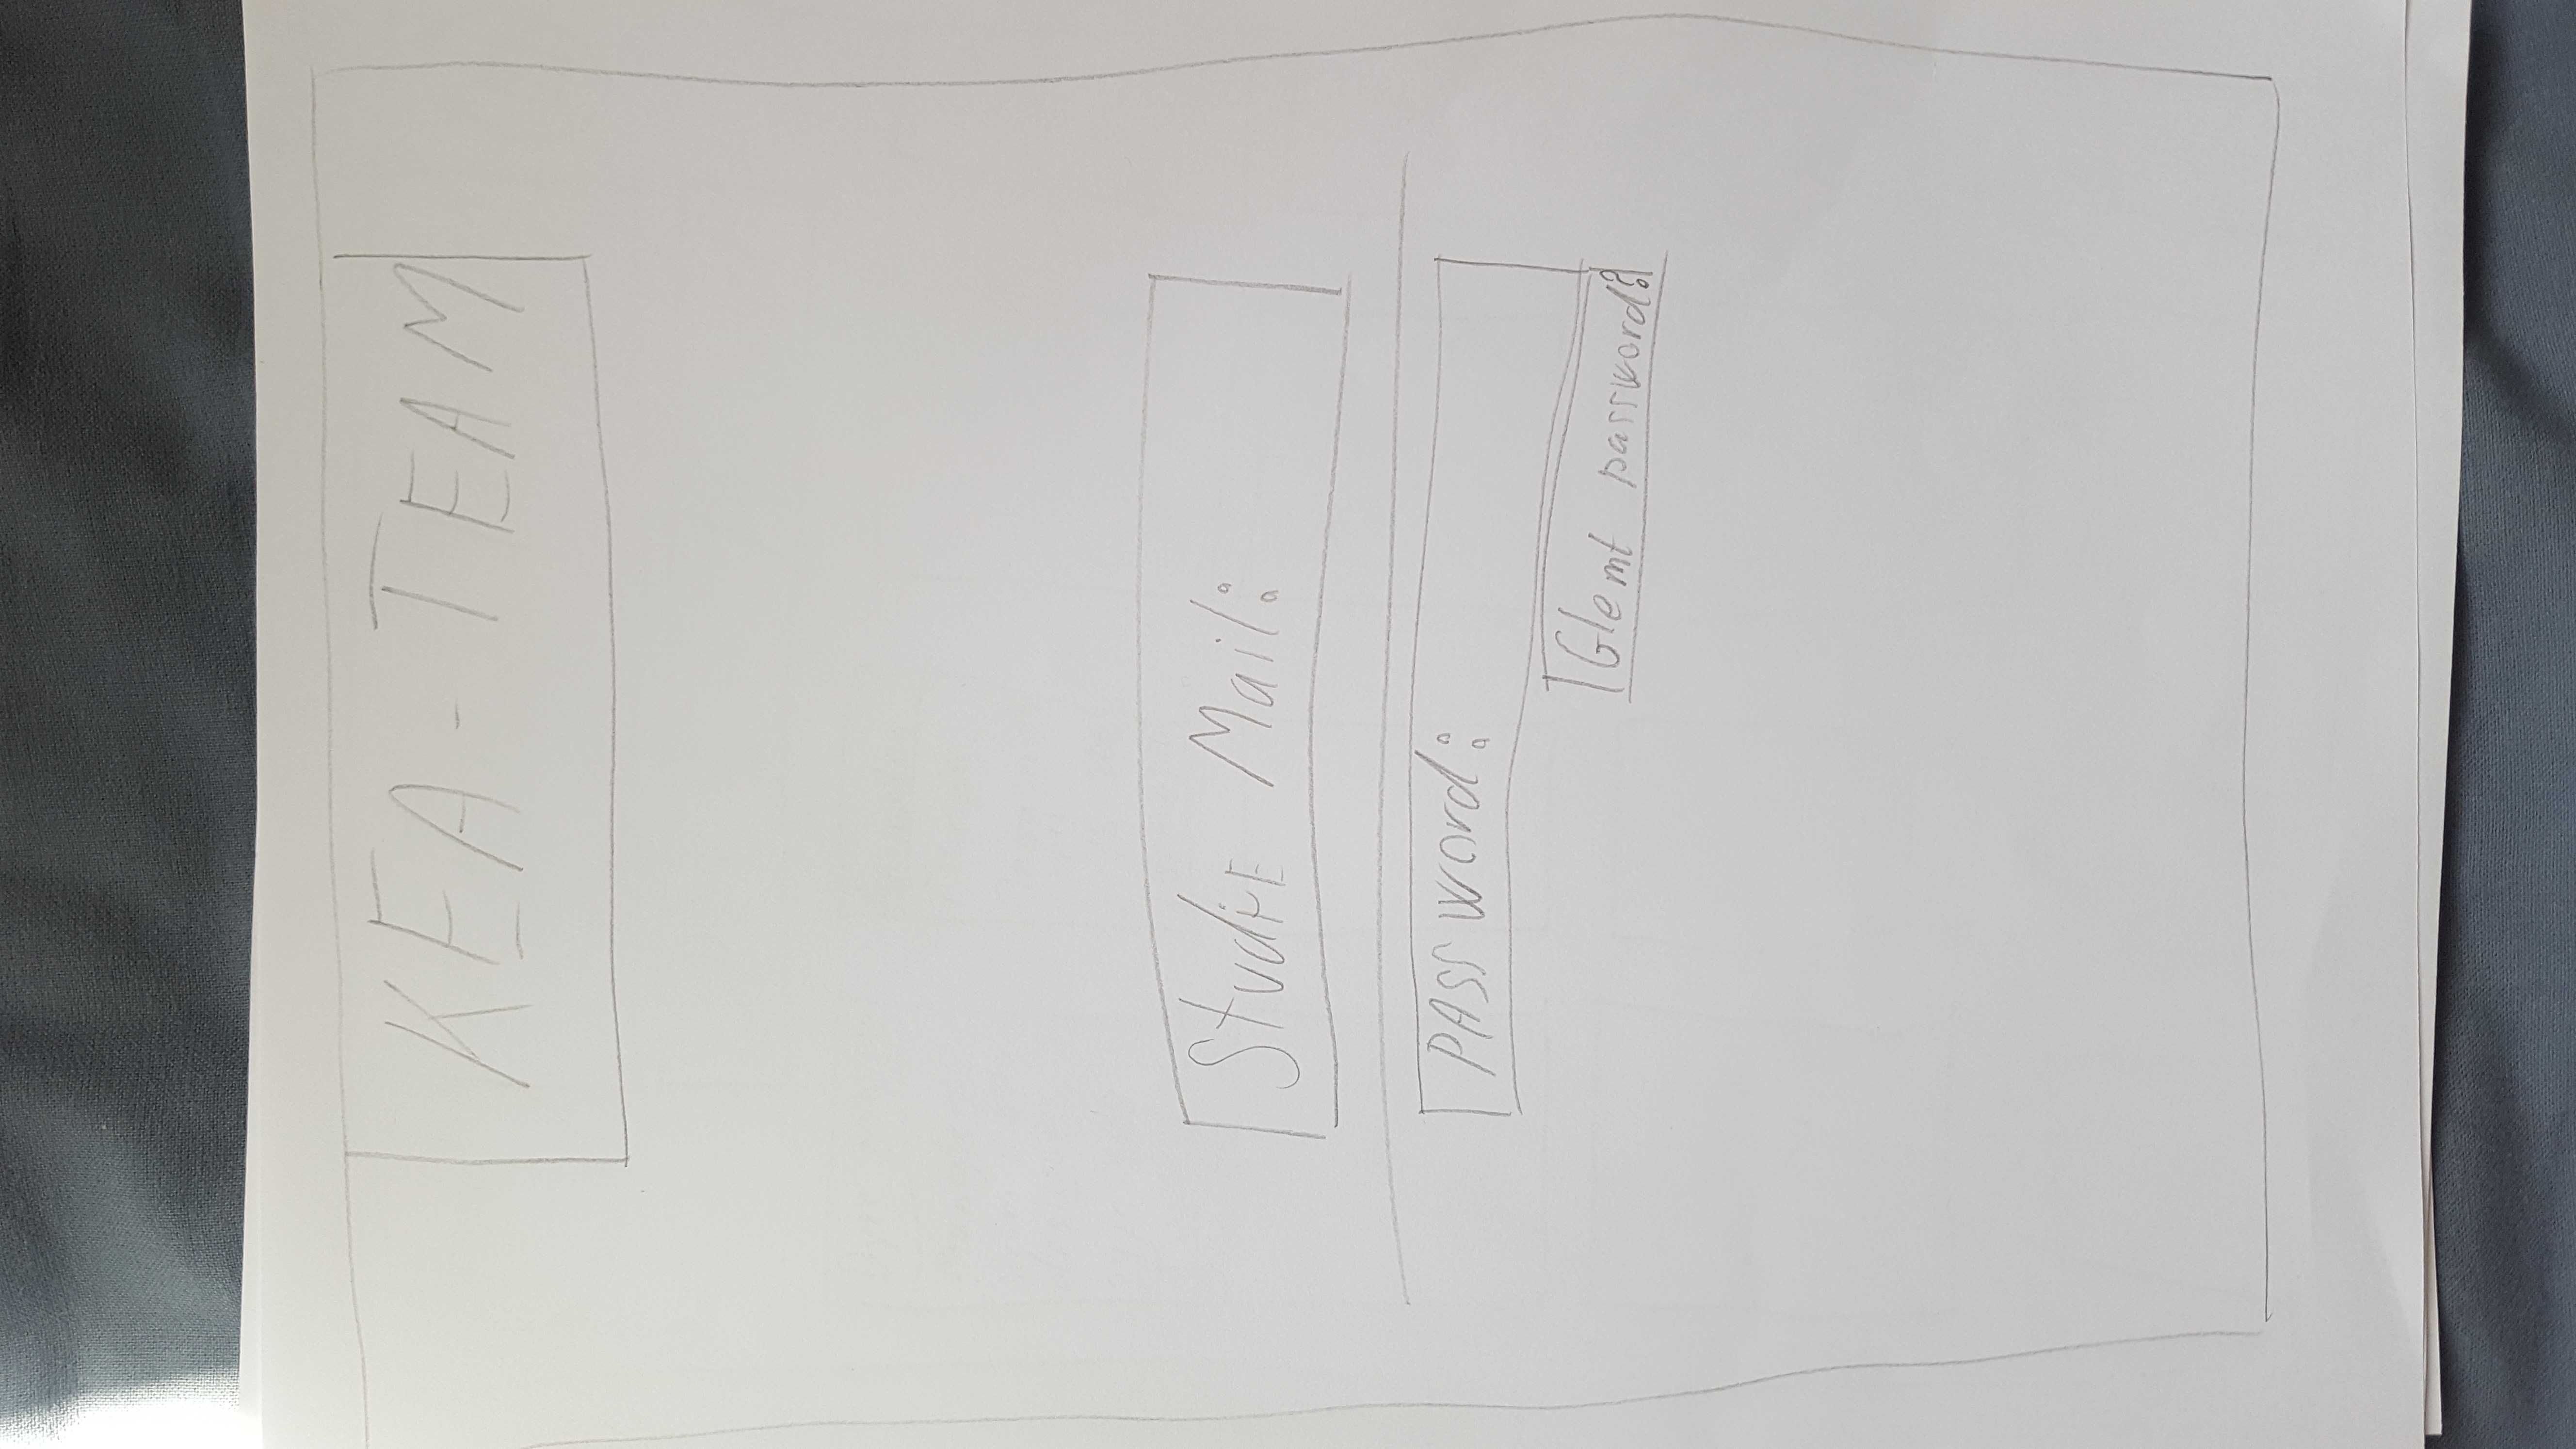 KEA - TEAM
Studie Mail:
PASSword:
Glemt password?